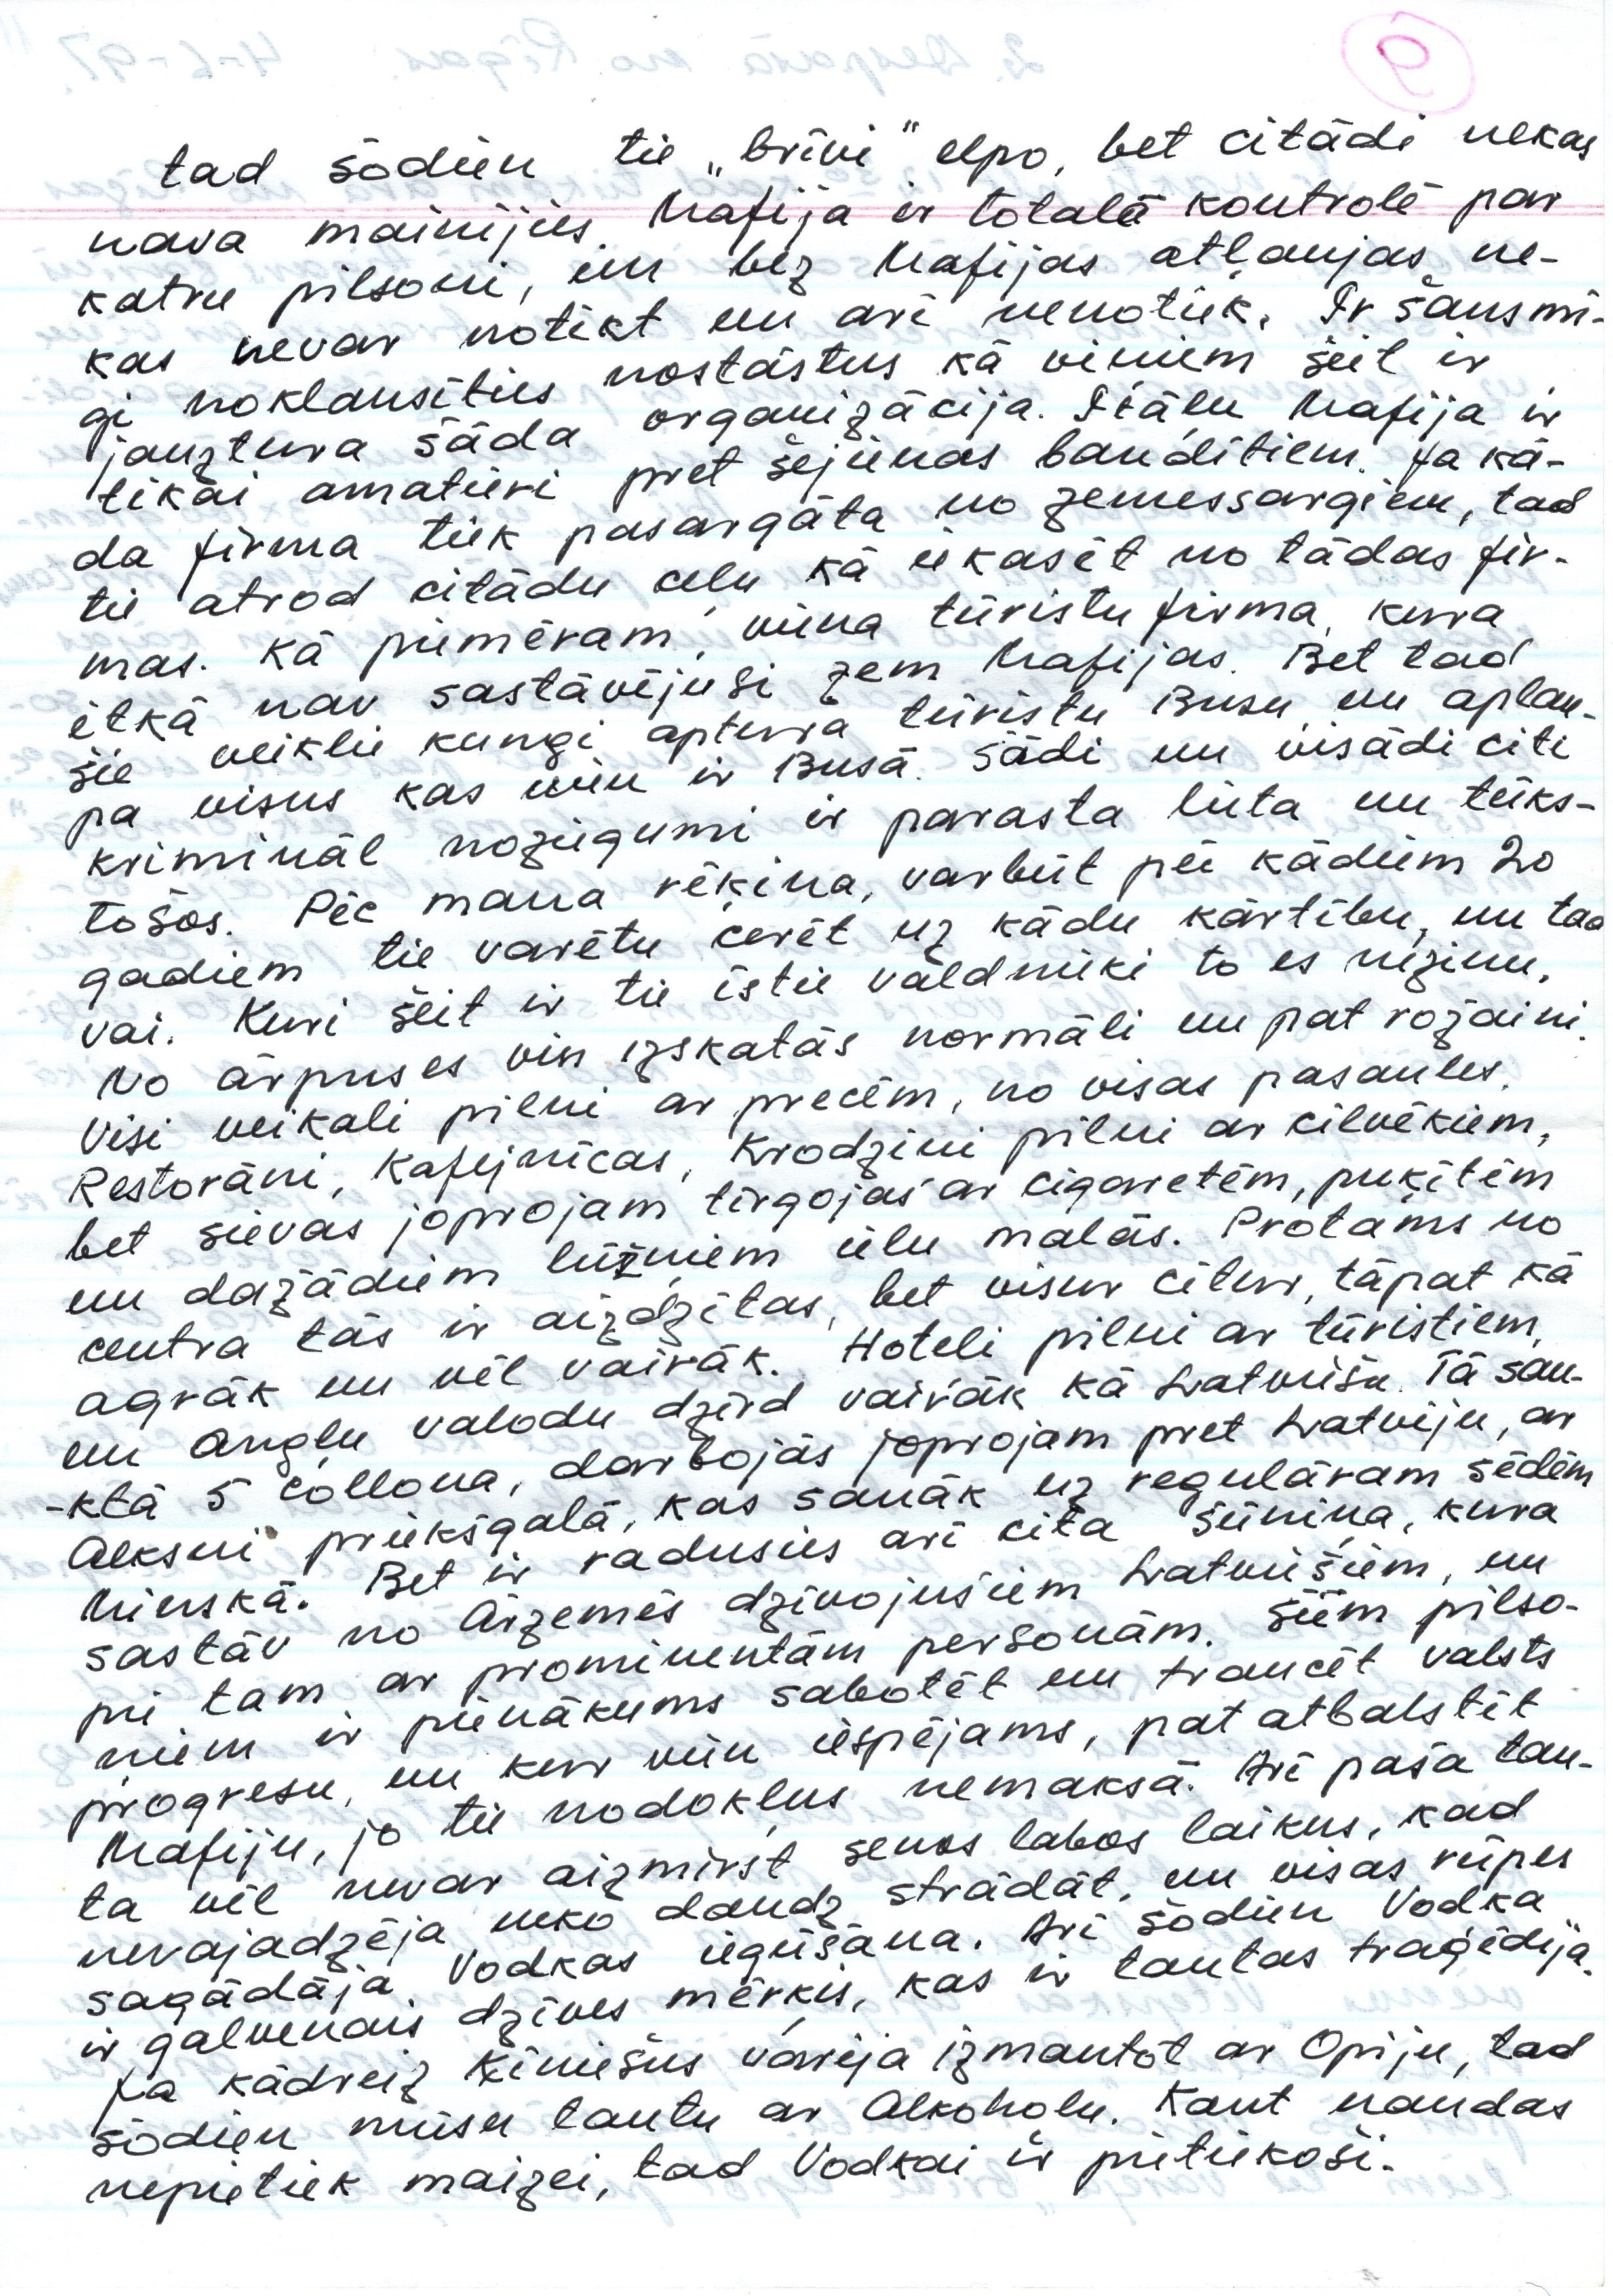 9
tad šodien tie „brīvi" elpo, bet citādi nekas
nava mainijies. Mafija ir totalā kontrolē par
katru pilsoni, un bez Mafijas atļaujas ne-
kas nevar notikt un arī nenotiek. Ir šausmi-
gi noklausīties nostāstus kā viņiem šeit ir
jauztura šāda organizācija. Itāļu Mafija ir
tikai amatieri pret šejienas banditiem. Ja kā-
da firma tiek pasargāta no zemessargiem, tad
tie atrod citādu ceļu kā iekasēt no tādas fir-
mas. Kā piemēram, viena tūristu firma, kura
itkā nav sastāvējusi zem Mafijas. Bet tad
šie veiklie kungi aptura tūristu Busu, un aplau-
pa visus kas vien ir Busā. Šādi un visādi citi
krimināl noziegumi ir parasta lieta un tūks-
tošos. Pēc mana rēķina, varbūt pēc kādiem 20
gadiem tie varētu cerēt uz kādu kārtību, un tad
vai. Kuri šeit ir tie īstie valdnieki to es nezinu.
No ārpuses viss izskatās normāli un pat rožaini.
Visi veikali pilni ar precēm, no visas pasaules.
Restorāni, Kafejnīcas, Krodziņi pilni ar cilvēkiem,
bet sievas joprojam tirgojas ar cigaretēm, puķitēm
un dažādiem lūžņiem ielu malās. Protams no
centra tās ir aizdzītas, bet visur citur, tāpat kā
agrāk un vēl vairāk. Hoteli pilni ar tūristiem,
un Angļu valodu dzird vairāk kā Latviešu. Tā sau-
-ktā 5 collona, darbojās joprojam pret Latviju, ar
Alksni priekšgalā, kas sanāk uz regulāram sēdēm
Minskā. Bet ir radusies arī cita šūniņa, kura
sastāv no Ārzemēs dzīvojušiem Latviešiem, un
pie tam ar prominentām personām. Šiem pilso-
ņiem ir pienākums sabotēt un traucēt valsts
progresu, un kur vien iespējams, pat atbalstīt
Mafiju, jo tie nodokļus nemaksā. Arī paša tau-
ta vēl nevar aizmirst senos labos laikus, kad
nevajadzēja neko daudz strādāt, un visas rūpes
sagādāja Vodkas iegūšana. Arī šodien Vodka
ir galvenais dzīves mērķis, kas ir tautas traģēdija.
Ja kādreiz Ķīniešus varēja izmantot ar Opiju, tad
šodien mūsu tautu ar Alkoholu. Kaut naudas
nepietiek maizei, tad Vodkai ir pietiekoši.